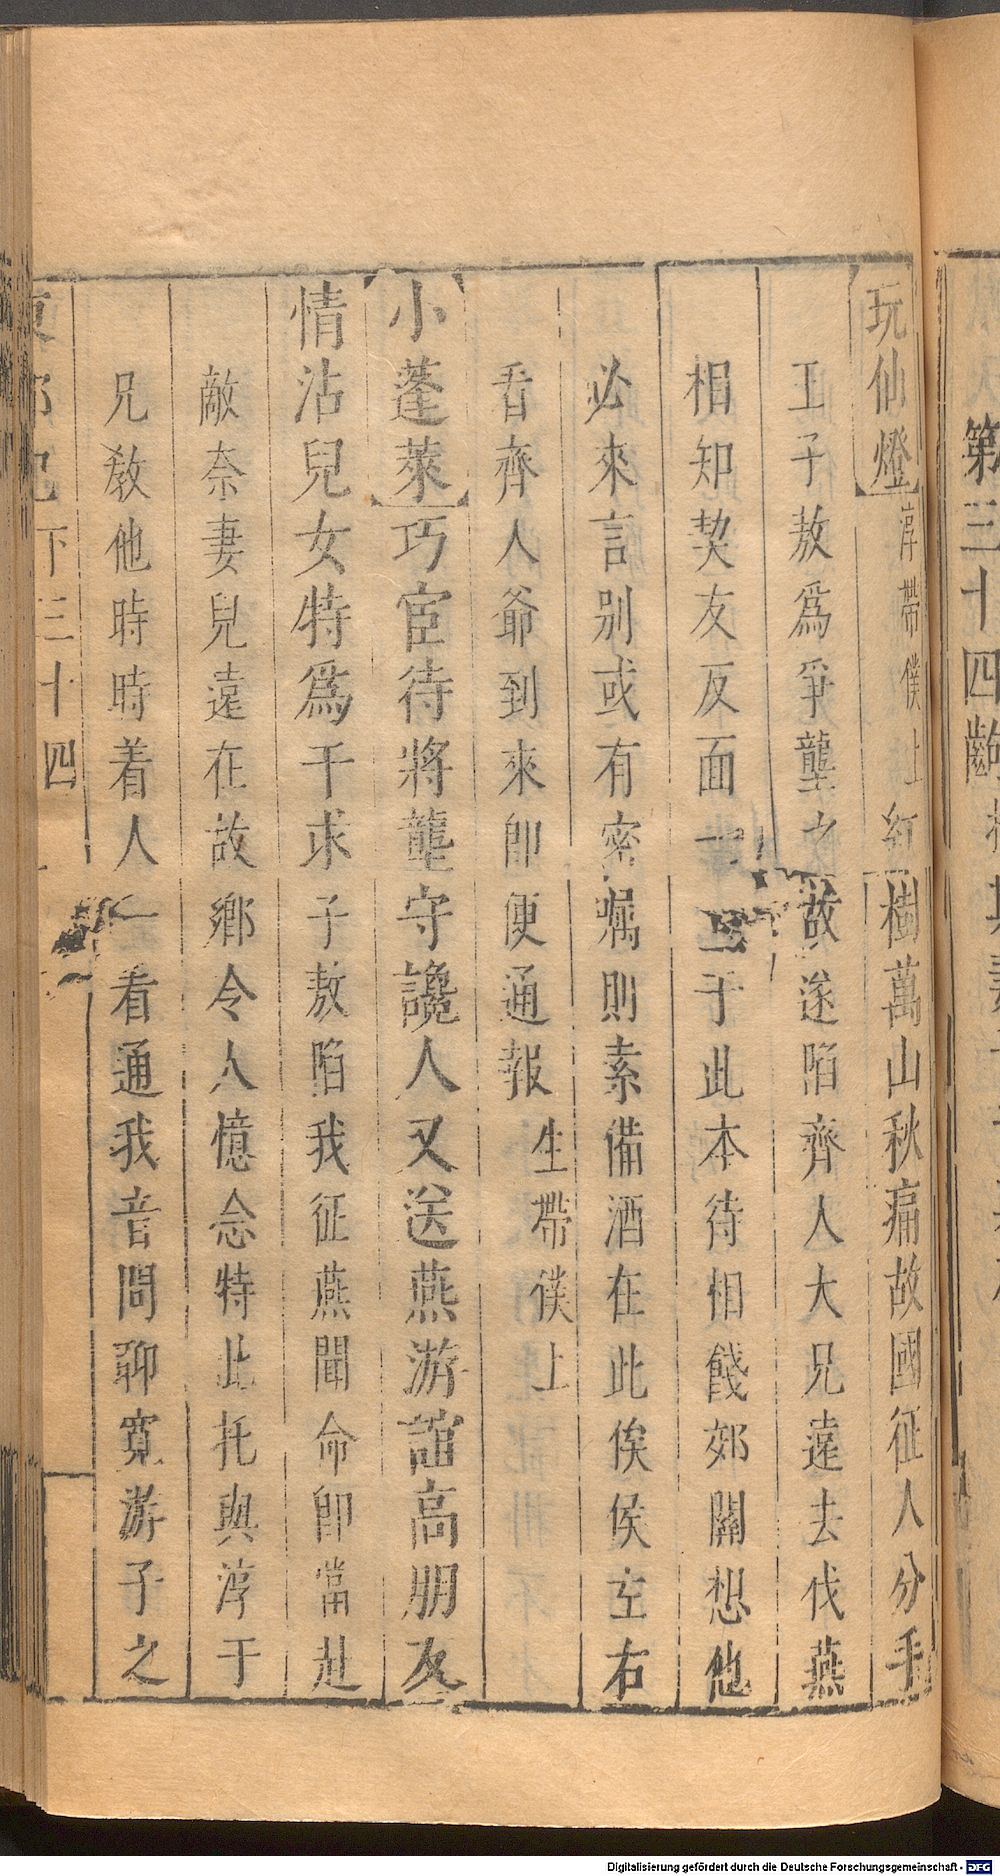 第三十四齣
玩仙燈淳帶僕上紅樹萬山秋痛故國征人分手
王子敖爲爭壟之故遂陷齊人大兄遠去伐燕
相知契友反面一至于此本待相餞郊關想他
必來言别或有密囑則索備酒在此俟侯左右
看齊人爺到來卽便通報生帶僕上
小蓬萊巧宦待將壟守讒人又送燕游誼高朋友
情沾兒女特爲干求子敖陷我征燕聞命卽當赴
敵奈妻兒遠在故鄉令人憶念特此托與淳于
兄教他時時着人一看通我音問聊寬游子之
東郭記下三十四
Digitalisierung gefördert durch die Deutsche Forschungsgemeinschaft - DFG